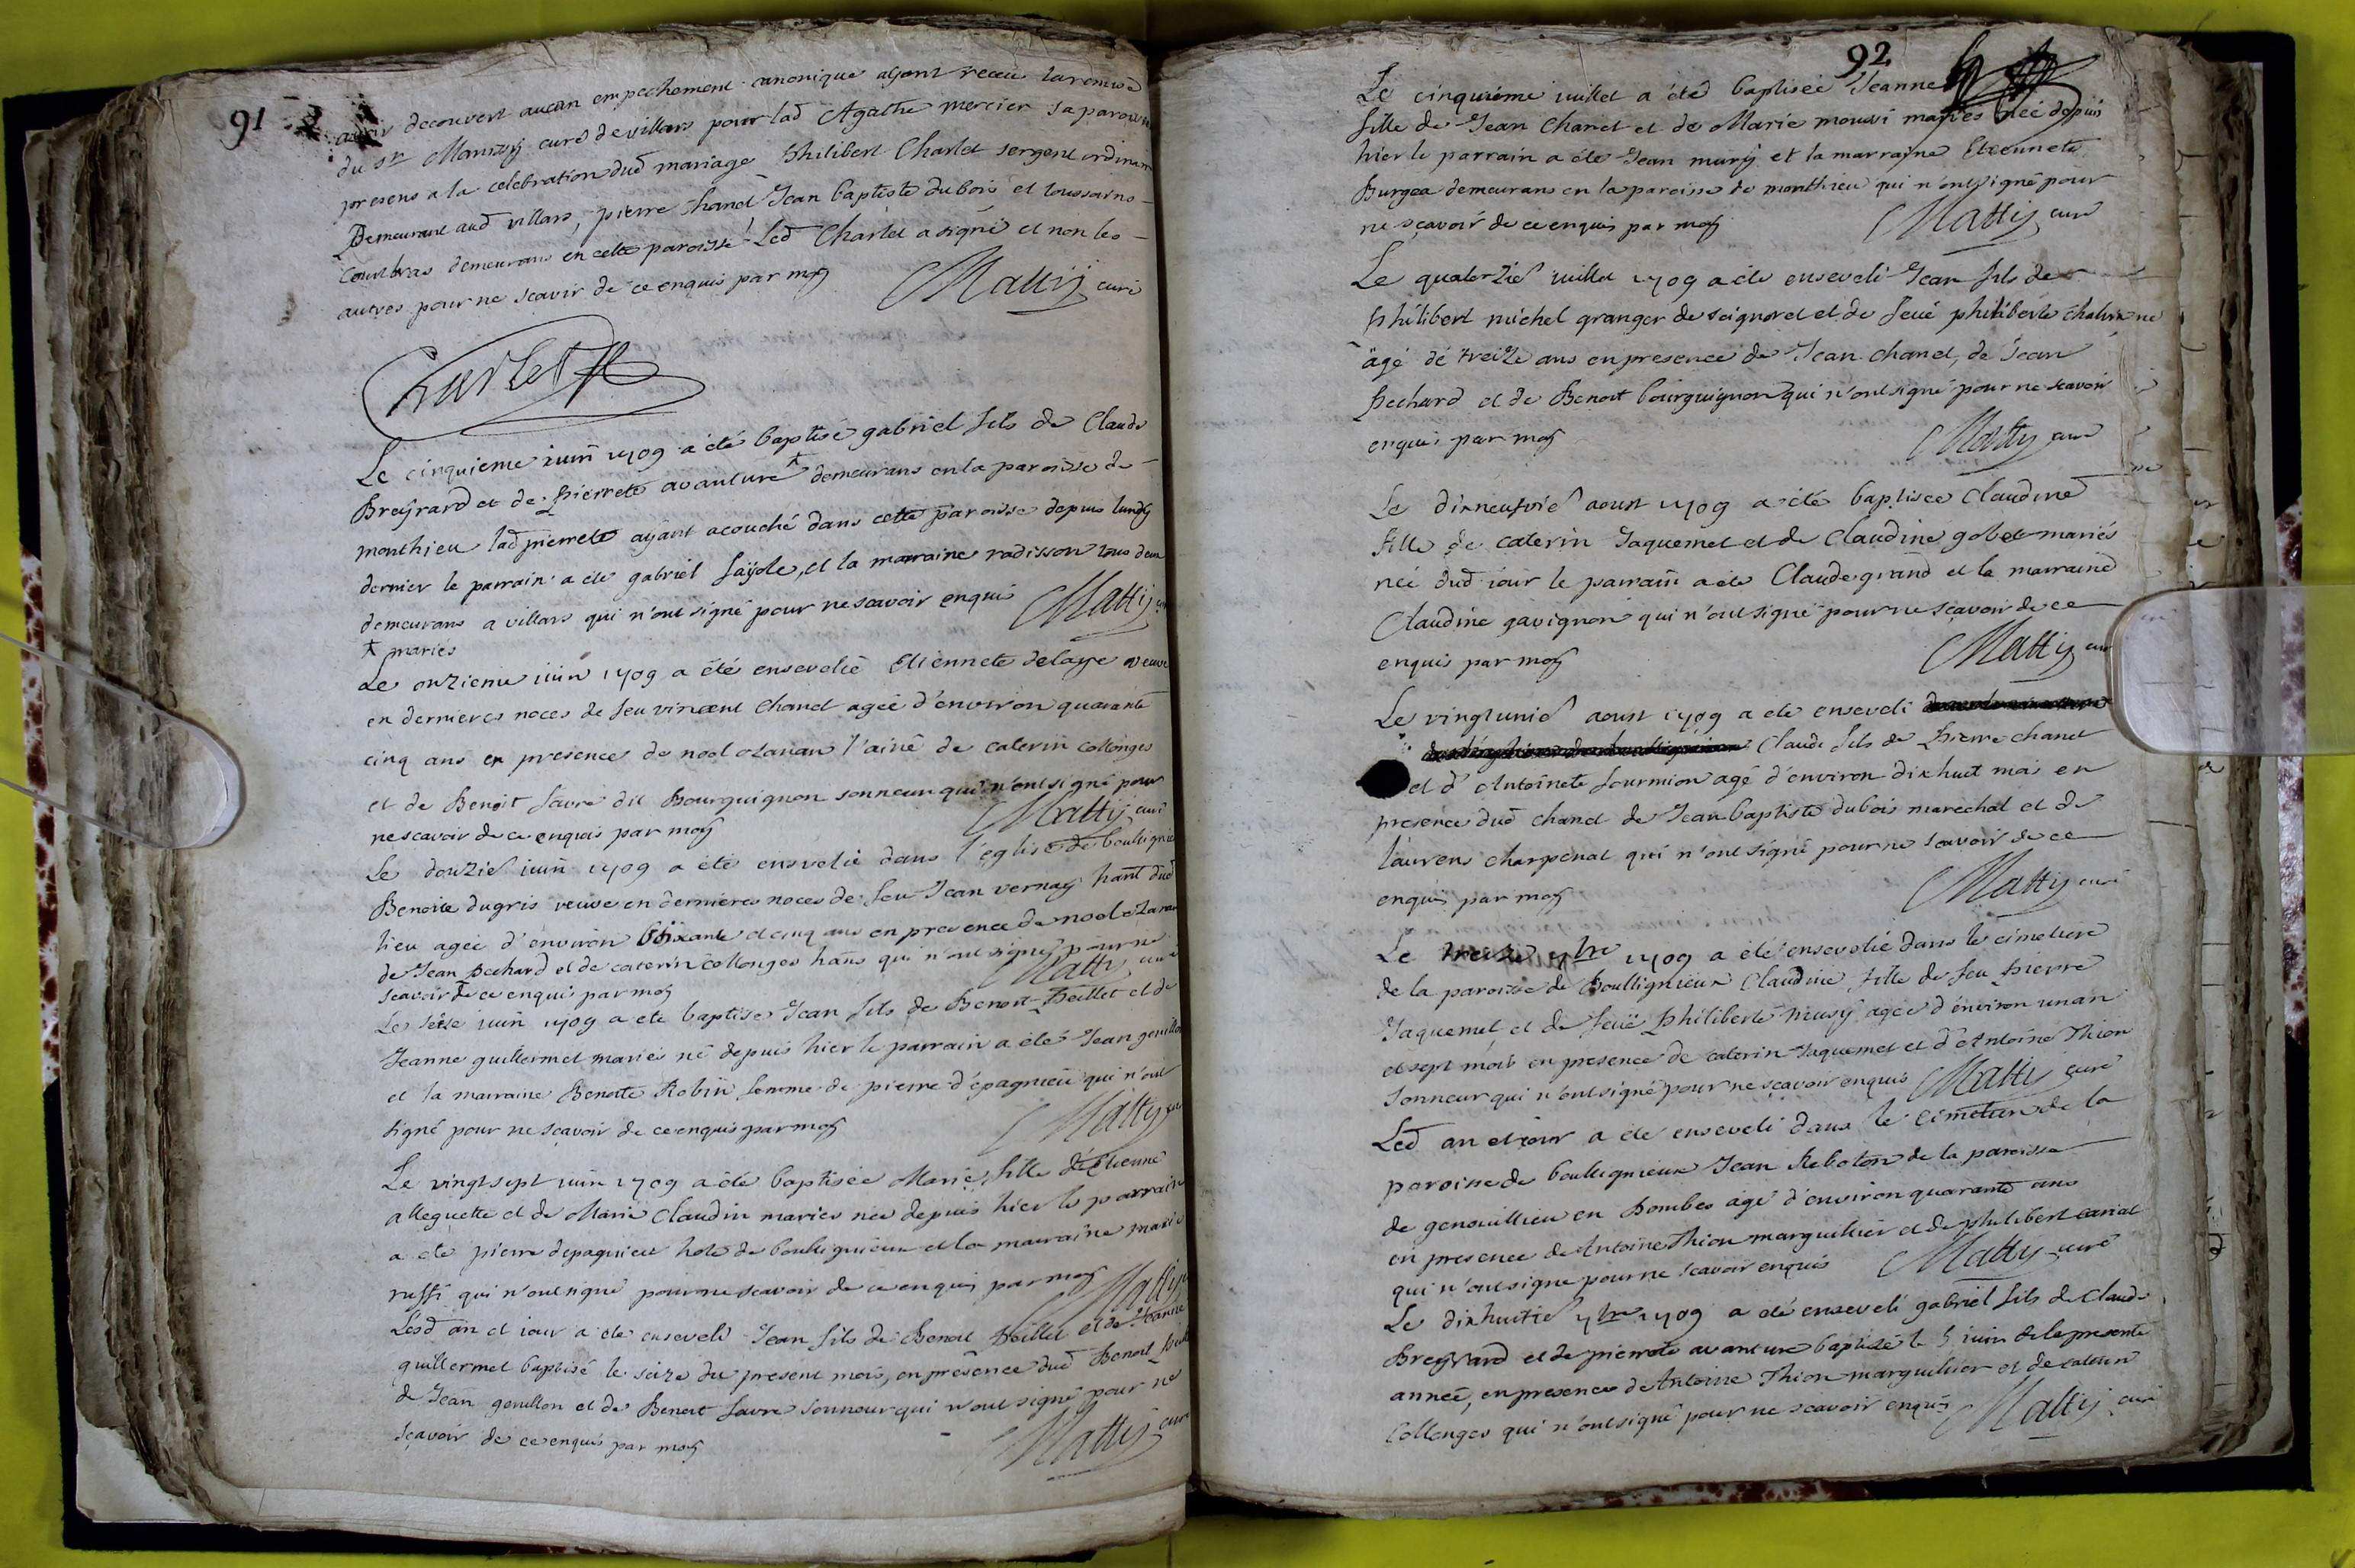 91
avoir decouvert aucun empechement canonique ayant receu la remise
du sr curé de villars pour lad Agathe mercier sa paroiss
presens a la celebration dud mariage philibert Charlet sergent ordinair
Demeurant aud villars, pierre chanel Jean baptiste dubois et toussains
demeurans en cette paroisse Led Charlet a signé et non les
autres pour ne scavoir de ce enquis par moy Mattij curé
Charlet
Le cinquieme iuin 1709 a été baptisé gabriel fils de Claude
Breyrard et de pierrete avanture + demeurans en la paroisse de
monthieu lad pierrete ayant acouché dans cette paroisse depuis lundy
dernier le parrain a éte gabriel fayole, et la marraine radisson tous deux
demeurans a villars qui n'ont signé pour ne scavoir enquis Mattij
+ mariés
Le onzieme iuin 1709 a étés ensevelie Etiennete delaye veuve
en dernieres noces de feu vincent Chanel agée d'environ quarante
cinq ans en presence de noel ozanan l'ainé de caterin collonges
et de Benoit favre dit Bourguignon sonneur qui n'ont signé pour
ne scavoir de ce enquis par moy Mattij curé
Le douzie iuin 1709 a été ensvelie dans l'église de boulligneux
Benoite dugris veuve en dernieres noces de feu Jean vernay hant dud
lieu agée d'environ soixante et cinq ans en presence de noel ozanan
de Jean pechard et de caterin collonges hans qui n'ont signé pour ne
scavoir de ce enquis par moy Mattij curé
Le seise iuin 1709 a ete baptise Jean fils de Benoit peillet et de
Jeanne guillermet mariés né depuis hier le parrain a été Jean genillon
et la marraine Benoite Robin femme de pierre d'epagnieu qui n'ont
signé pour ne scavoir de ce enquis par moy Mattij
Le vingt sept iuin 1709 a été baptisée Marie fille d'etienne
alleguette et de Marie Claudin mariés née depuis hier le parrain
a ete pierre depagnieu hote de boulligneux et la marraine marie
ruffi qui n'ont signé pour ne scavoir de ce enquis par moy Mattij
Lesd an et iour a ete enseveli Jean fils de Benoit peillet et de Jeanne
guillermet baptisé le seize du present mois, en presence dud Benoit peillet
de Jean genillon et de Benoit favre sonneur qui n'ont signé pour ne
scavoir de ce enquis par moy Mattij curé
92
Le cinquiéme iuillet a été baptisée Jeanne
fille de Jean Chanel et de Marie moussi mariés née depuis
hier le parrain a éte Jean mury et la marrayne Etiennete
Burgea demeurans en la paroisse de monthieu qui n'ont signé pour
ne scavoir de ce enquis par moy Mattij curé
Le quatorzie iuillet 1709 a éte enseveli Jean fils de
philibert michel granger de seignoret et de feüe philiberte
âgé de treize ans en presence de Jean chanel, de Jean
pechard et de Benoit bourguignon qui n'ont signé pour ne scavoir
enquis par moy Mattij curé
Le dixneufvie aoust 1709 a été baptisee Claudine
fille de caterin Jaquemet et de Claudine gobet mariés
née dud iour le parrain a éte Claude grand et la marraine
Claudine gavignon qui n'ont signé pour ne scavoir de ce
enquis par moy Mattij curé
Le vingtunie aoust 1709 a éte enseveli
Claude fils de pierre chanel
et d'Antoinete fournion agé d'environ dixhuit mois en
presence dud chanel de Jean baptiste dubois marechal et de
laurens charpenat qui n'ont signé pour ne scavoir de ce
enquis par moy Mattij curé
Le treize 7bre 1709 a été ensevelie dans le cimetiere
de la paroisse de Boulligneux Claudine fille de feu pierre
Jaquemet et de feüe philiberte musy agée d'environ un an
et sept mois en presence de caterin Jaquemet et d'Antoine Thion
sonneur qui n'ont signé pour ne scavoir enquis Mattij curé
Led an et iour a éte enseveli dans le cimetiere de la
paroisse de boulligneux Jean Reboton de la paroisse
de genouillieu en Dombes agé d'environ quarante ans
en presence de Antoine Thion marguillier et de philibert
qui n'ont signé pour ne scavoir enquis Mattij curé
Le dixhuitie 7bre 1709 a été enseveli gabriel fils de Claude
Breyrard et de pierrete avanture baptisé le 5 iuin de la presente
année, en presence de Antoine Thion marguillier et de caterin
Collonges qui n'ont signé pour ne scavoir enquis Mattij curé